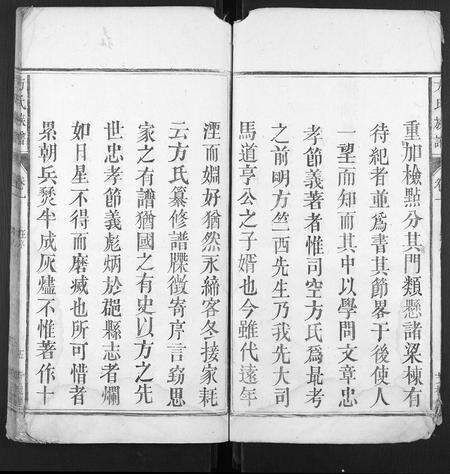 重加檢點分其門類懸諸梁棟有
待紀者並爲書其節畧于後使人
一望而知而其中以學問文章忠
孝節義著者惟司空方氏爲最考
之前明方竺西先生乃我先大司
馬道亨公之子婿也今雖代遠年
湮而姻好猶然永締客冬接家耗
云方氏纂修譜牒徵寄序言竊思
家之有譜猶國之有史以方之先
世忠孝節義彪炳於郡縣志者爛
如日星不得而磨滅也所可惜者
累朝兵燹半成灰燼不惟著作十
方氏族譜
卷一